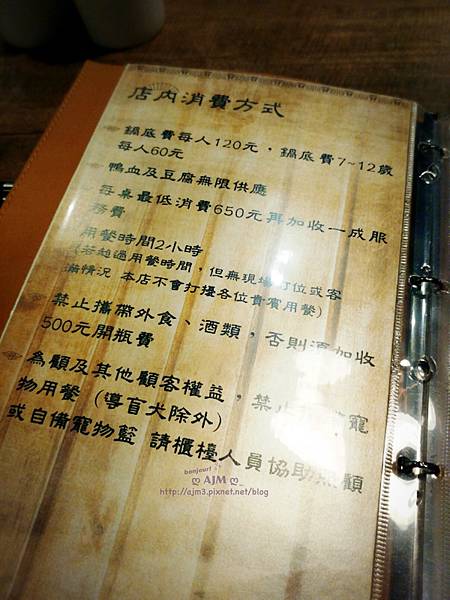 店內消費方式
鍋底費每人120元，鍋底費7~12歲
每人60元
鴨血及豆腐無限供應
每桌最低消費650元再加收一成服
務費
用餐時間2小時
若超過用餐時間，但無現場訂位或客
滿情況 本店不會打擾各位貴賓用餐)
禁止攜帶外食、酒類，否則須加收
500元開瓶費
為顧及其他顧客權益，禁止 寵
物用餐（導盲犬除外）
或自備寵物籃 請櫃檯人員協助照顧
bonjour!
AJM
http://ajm3.pixnet.net/blog